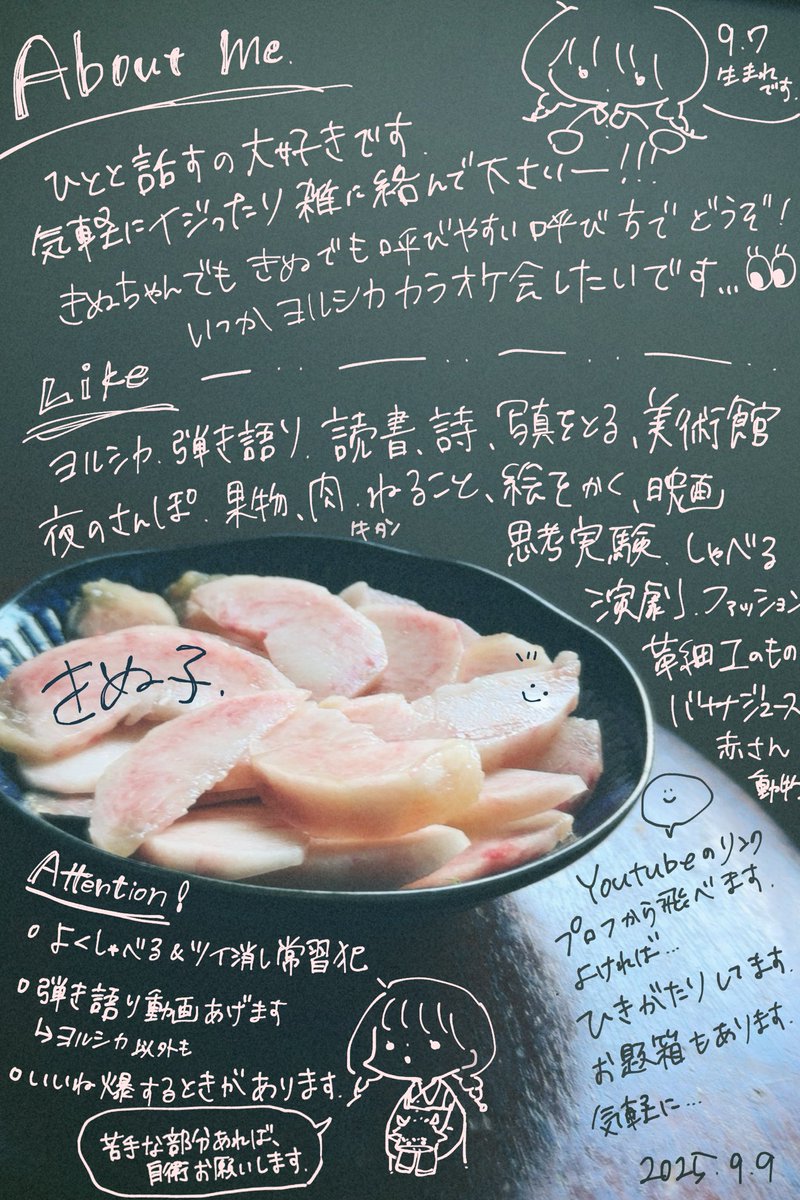 About me.
9.7
生まれ
です.
ひとと話すの大好きです.
気軽にイジったり雑に絡んで下さいー!!!
きぬちゃんでもきぬでも呼びやすい呼び方でどうぞ!
いつかヨルシカカラオケ会したいです...
Like
ヨルシカ.弾き語り.読書、詩、写真をとる、美術館
夜のさんぽ.果物、肉.ねること、絵をかく、映画
牛タン
思考実験.しゃべる
演劇.ファッション
革細工のもの
バナナジュース
赤さん
動物
きぬ子.
Attention!
よくしゃべる&ツイ消し常習犯
弾き語り動画あげます
↳ヨルシカ以外も
いいね爆するときがあります.
苦手な部分あれば、
自衛お願いします.
Youtubeのリンク
プロフから飛べます.
よければ...
ひきがたりしてます.
お題箱もあります.
気軽に...
2025.9.9